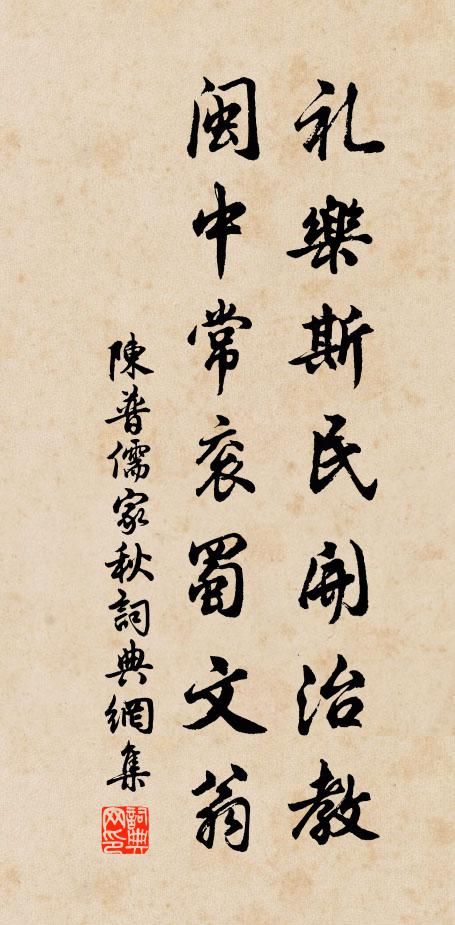 礼樂斯民開治教
閩中常衮蜀文翁
陳普儒家秋詞典網集
詞典网印